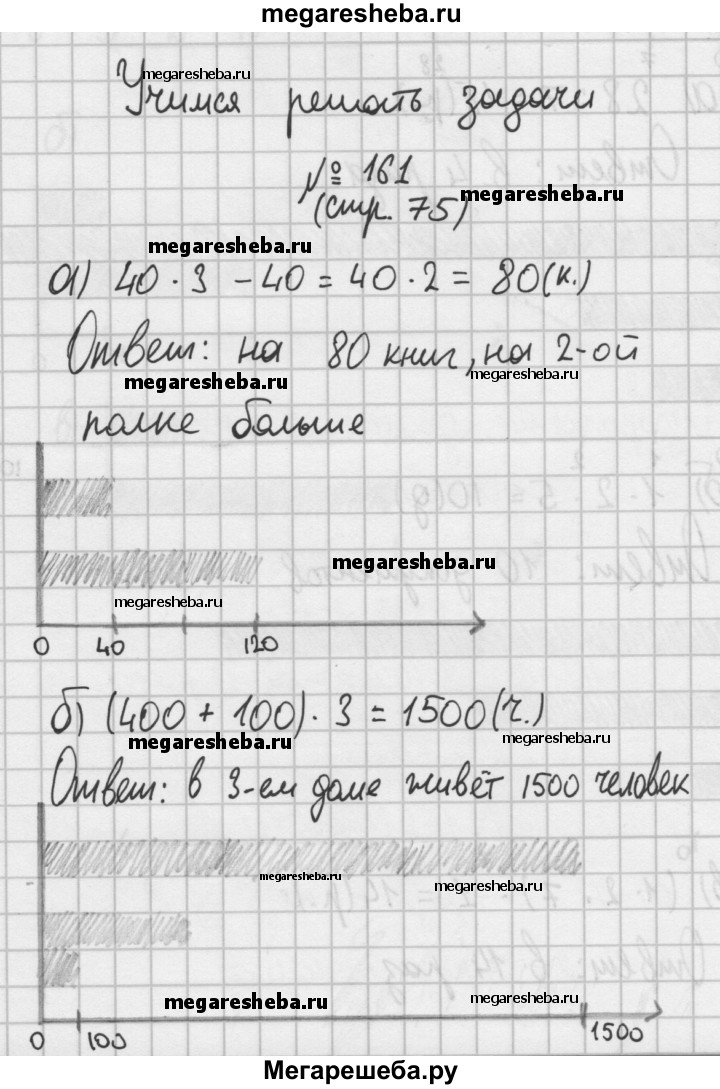 megaresheba.ru
megaresheba.ru
Учимся решать задачи
№ 161
(стр. 75)
megaresheba.ru
megaresheba.ru
а) 40 · 3 - 40 = 40 · 2 = 80(к.)
Ответ: на 80 книг, на 2-ой
megaresheba.ru
megaresheba.ru
полке больше
megaresheba.ru
megaresheba.ru
0 40 120
б) (400 + 100) · 3 = 1500(ч.)
megaresheba.ru
megaresheba.ru
Ответ: в 3-ем доме живёт 1500 человек
megaresheba.ru
megaresheba.ru
megaresheba.ru
megaresheba.ru
0 100 1500
Мегарешеба.ру